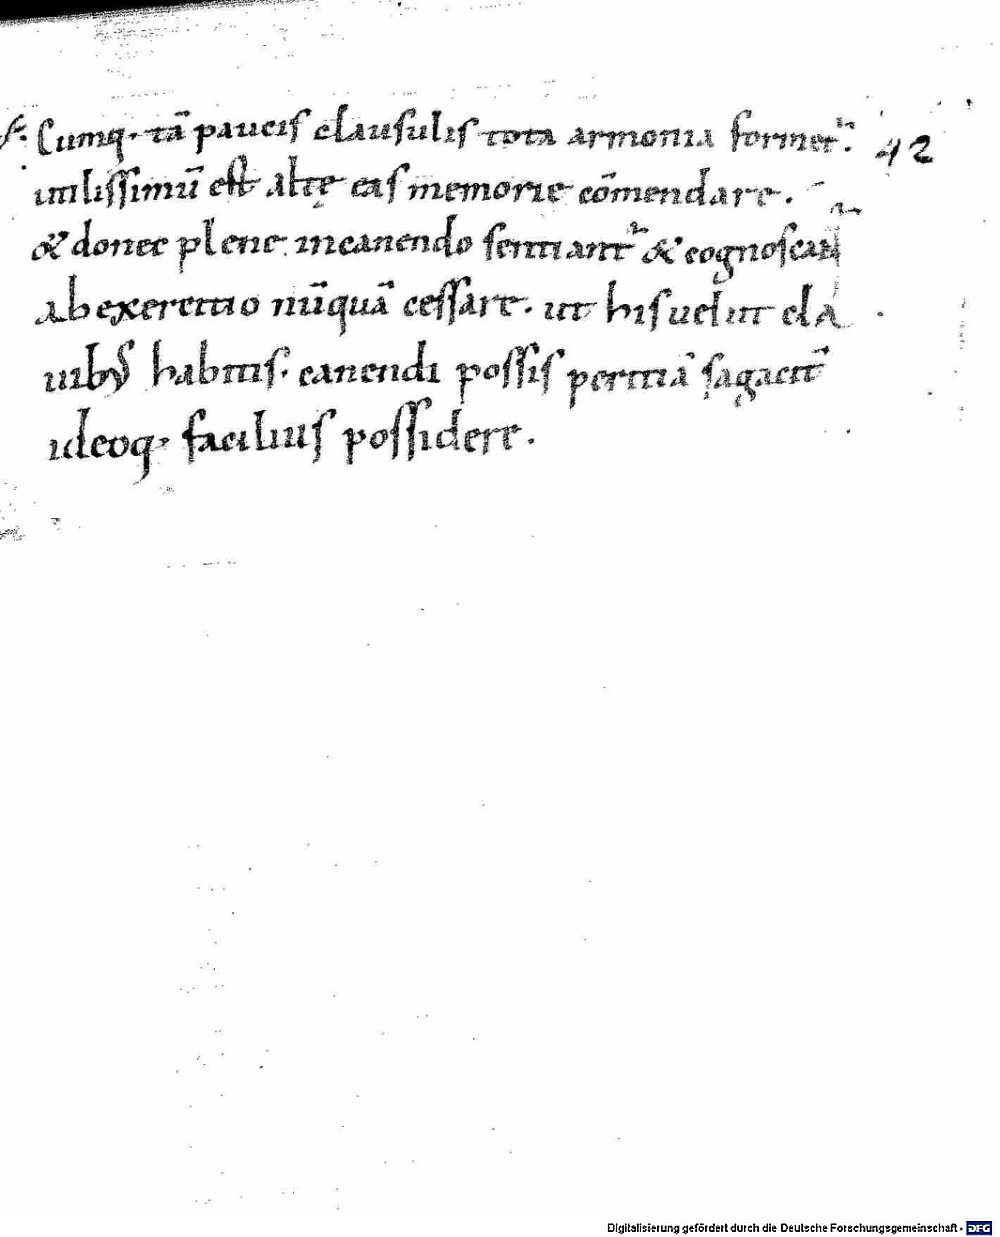 Cumq· tā paucis clausulis tota armonia formet᷑. 42
utilissimū est alte eas memorie cōmendare.
& donec plene in canendo sentiant᷑ & cognoscant᷑
ab exercitio nūquā cessare. ut his uelut cla
uibꝰ habitis. canendi possis peritiā sagacit̄
ideoq· facilius possidere.
Digitalisierung gefördert durch die Deutsche Forschungsgemeinschaft - DFG